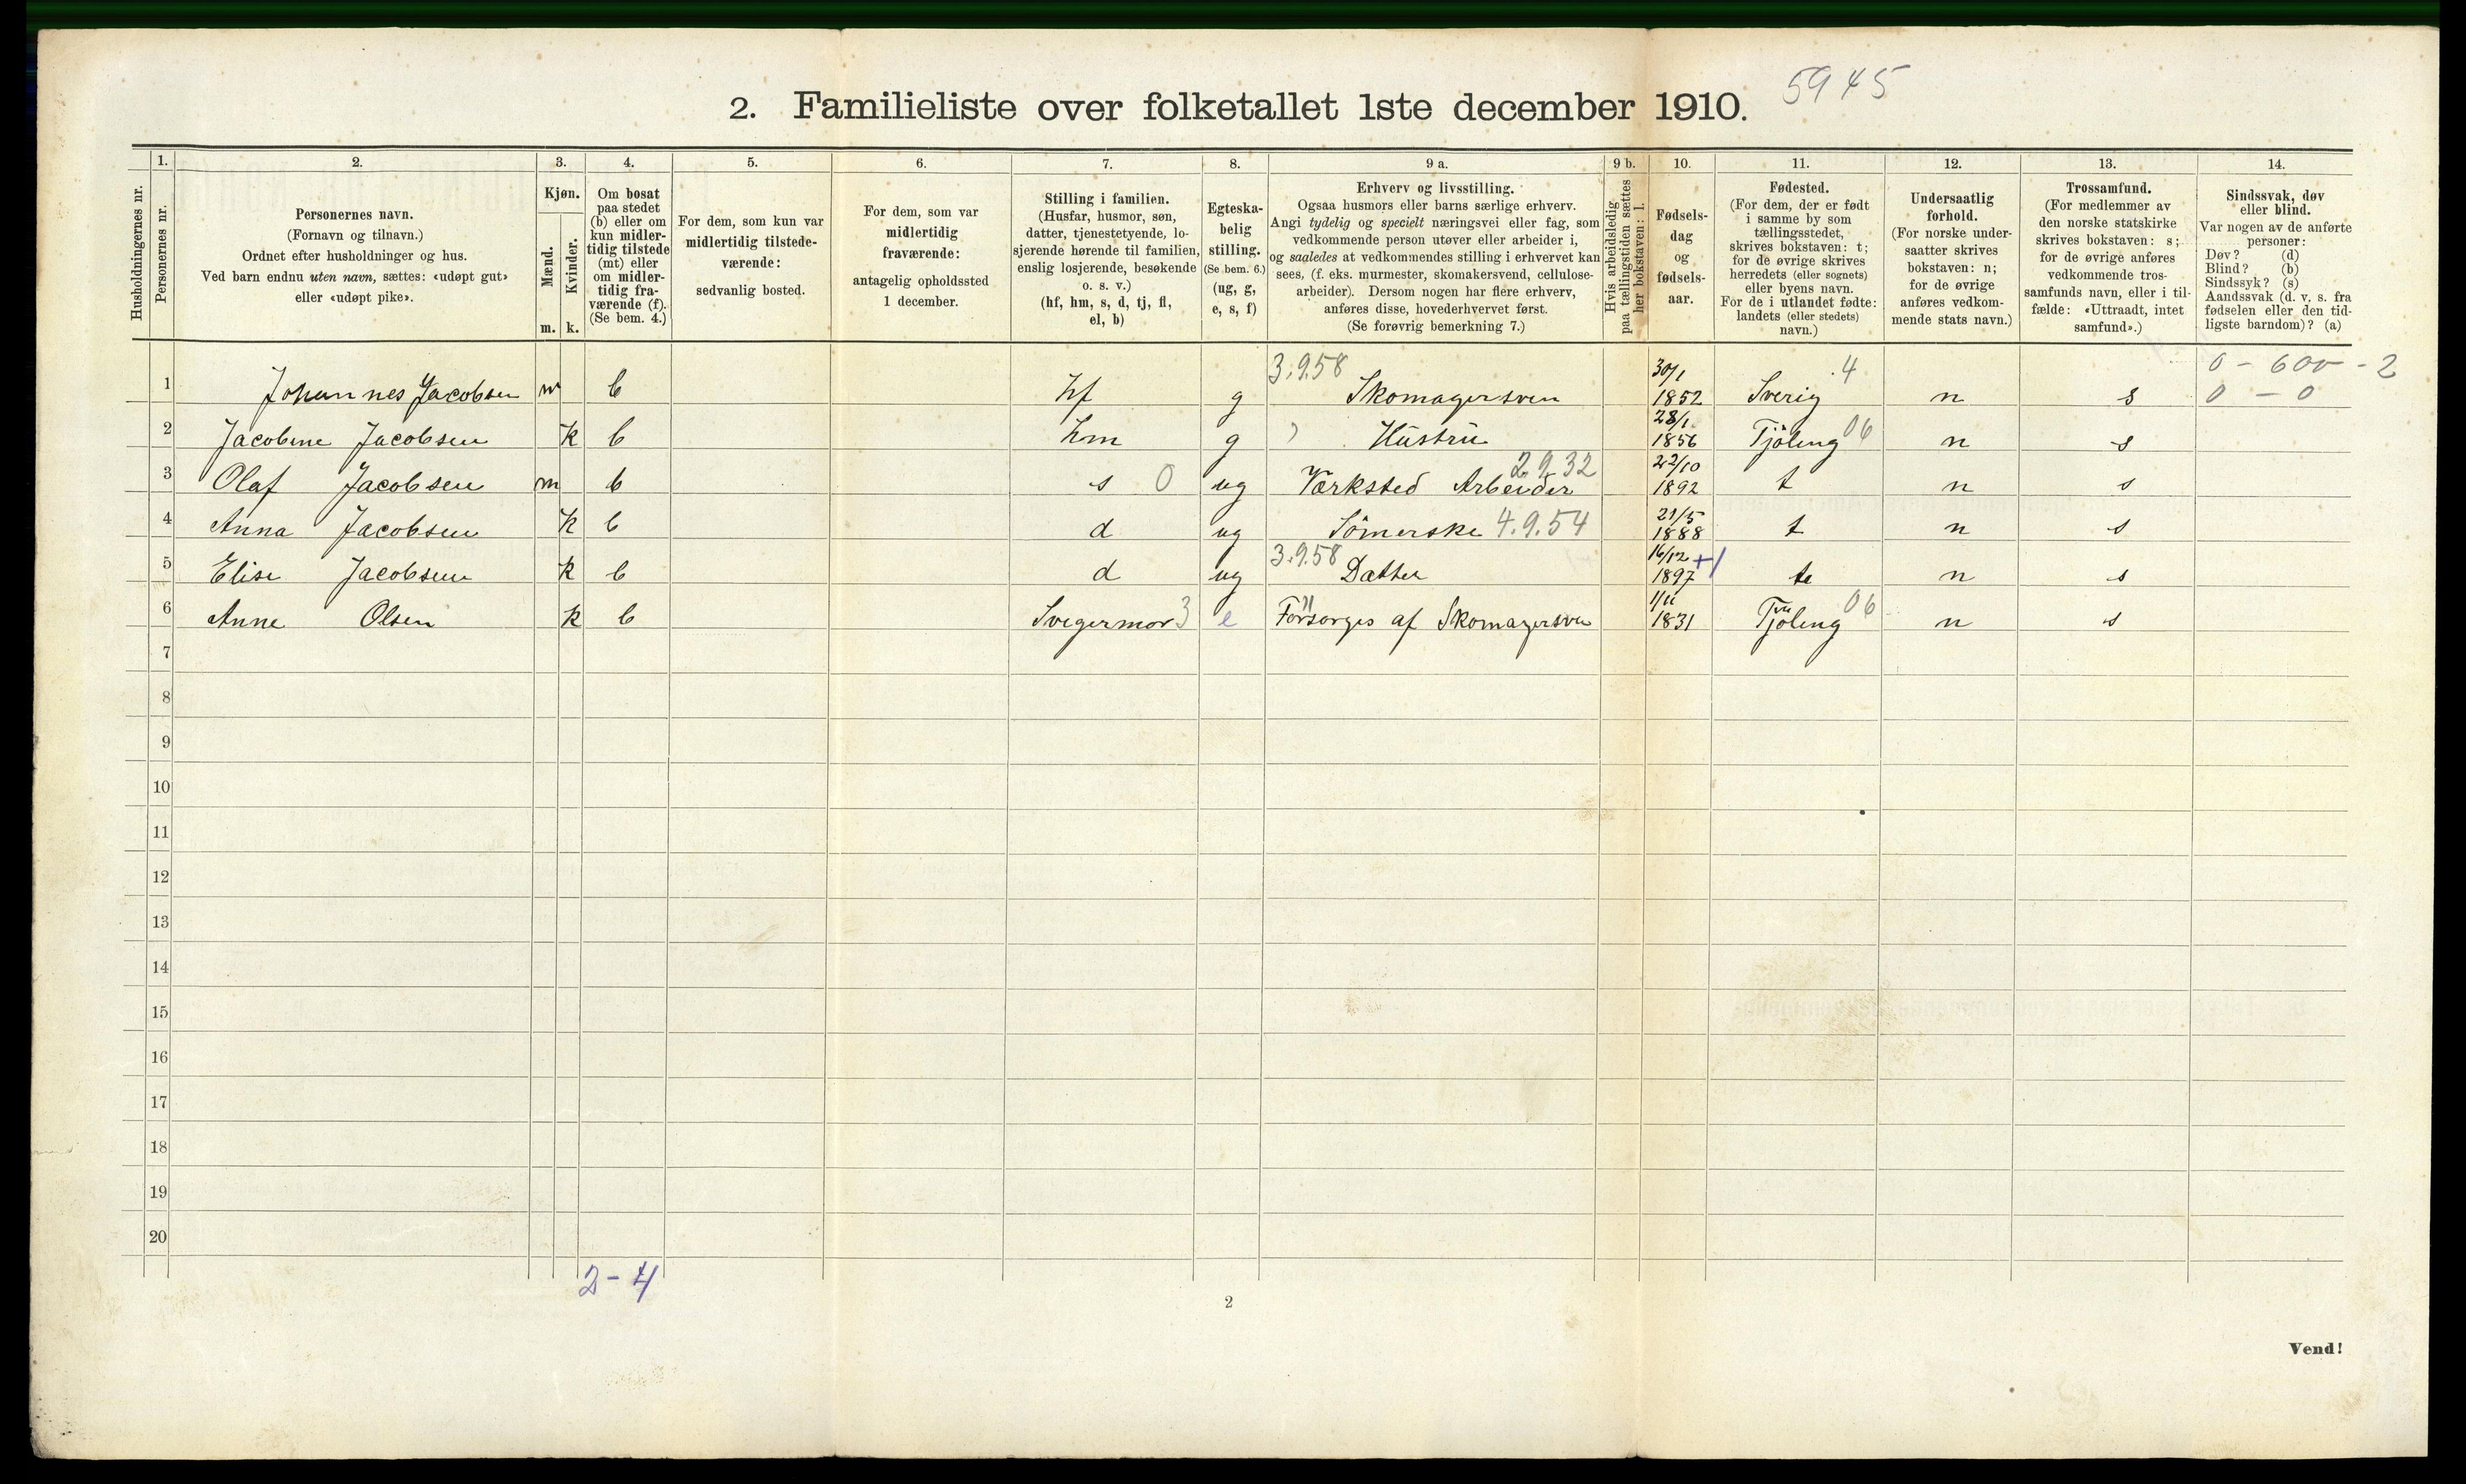 2. Familieliste over folketallet 1ste december 1910. 5945
Husholdningernes nr.
1.
Personernes nr.
2.
Personernes navn.
(Fornavn og tilnavn.)
Ordnet efter husholdninger og hus.
Ved barn endnu uten navn, sættes: «udøpt gut»
eller «udøpt pike».
3.
Kjøn.
Mænd.
m.
Kvinder.
k.
4.
Om bosat
paa stedet
(b) eller om
kun midler-
tidig tilstede
(mt) eller
om midler-
tidig fra-
værende (f).
(Se bem. 4.)
5.
For dem, som kun var
midlertidig tilstede-
værende:
sedvanlig bosted.
6.
For dem, som var
midlertidig
fraværende:
antagelig opholdssted
1 december.
7.
Stilling i familien.
(Husfar, husmor, søn,
datter, tjenestetyende, lo-
sjerende hørende til familien,
enslig losjerende, besøkende
o. s. v.)
(hf, hm, s, d, tj, fl,
el, b)
8.
Egteska-
belig
stilling.
(Se bem. 6.)
(ug, g,
e, s, f)
9 a.
Erhverv og livsstilling.
Ogsaa husmors eller barns særlige erhverv.
Angi tydelig og specielt næringsvei eller fag, som
vedkommende person utøver eller arbeider i,
og saaledes at vedkommendes stilling i erhvervet kan
sees, (f. eks. murmester, skomakersvend, cellulose-
arbeider). Dersom nogen har flere erhverv,
anføres disse, hovederhvervet først.
(Se forøvrig bemerkning 7.)
9 b.
Hvis arbeidsledig
paa tællingstiden sættes
her bokstaven: l.
10.
Fødsels-
dag
og
fødsels-
aar.
11.
Fødested.
(For dem, der er født
i samme by som
tællingsstedet,
skrives bokstaven: t;
for de øvrige skrives
herredets (eller sognets)
eller byens navn.
For de i utlandet fødte:
landets (eller stedets)
navn.)
12.
Undersaatlig
forhold.
(For norske under-
saatter skrives
bokstaven: n;
for de øvrige
anføres vedkom-
mende stats navn.)
13.
Trossamfund.
(For medlemmer av
den norske statskirke
skrives bokstaven: s;
for de øvrige anføres
vedkommende tros-
samfunds navn, eller i til-
fælde: «Uttraadt, intet
samfund».)
14.
Sindssvak, døv
eller blind.
Var nogen av de anførte
personer:
Døv? (d)
Blind? (b)
Sindssyk? (s)
Aandssvak (d. v. s. fra
fødselen eller den tid-
ligste barndom)? (a)
3.9.58 30/1 4 0 - 600 - 2
1 Johannes Jacobsen m b hf g Skomagersven 1852 Sverig n s 0 - 0
28/1
2 Jacobine Jacobsen k b hm g Hüstrü 1856 Tjöling 06 n s
2.9.32 22/10
3 Olaf Jacobsen m b s 0 ug Værksted Arbeider 1892 t n s
21/5
4 Anna Jacobsen k b d ug Sömerske 4.9.54 1888 t n s
3.9.58 16/12 +1
5 Elise Jacobsen k b d ug Datter 1897 t n s
1/11
6 Anne Olsen k b Svigermor 3 e Forsorges af Skomagersven 1831 Tjöling 06 n s
7
8
9
10
11
12
13
14
15
16
17
18
19
20
2-4
2
Vend!